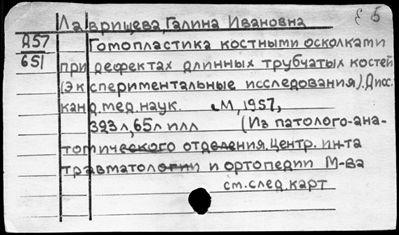 Лаврищева, Галина Ивановна
Д57 Гомопластика костными осколками
651 при дефектах длинных трубчатых костей
(экспериментальные исследования). Дисс.
канд. мед. наук. М, 1957,
393 л, 65 л илл (Из патолого-ана-
томического отделения, Центр. ин-та
травматологии и ортопедии М-ва
см. след. карт